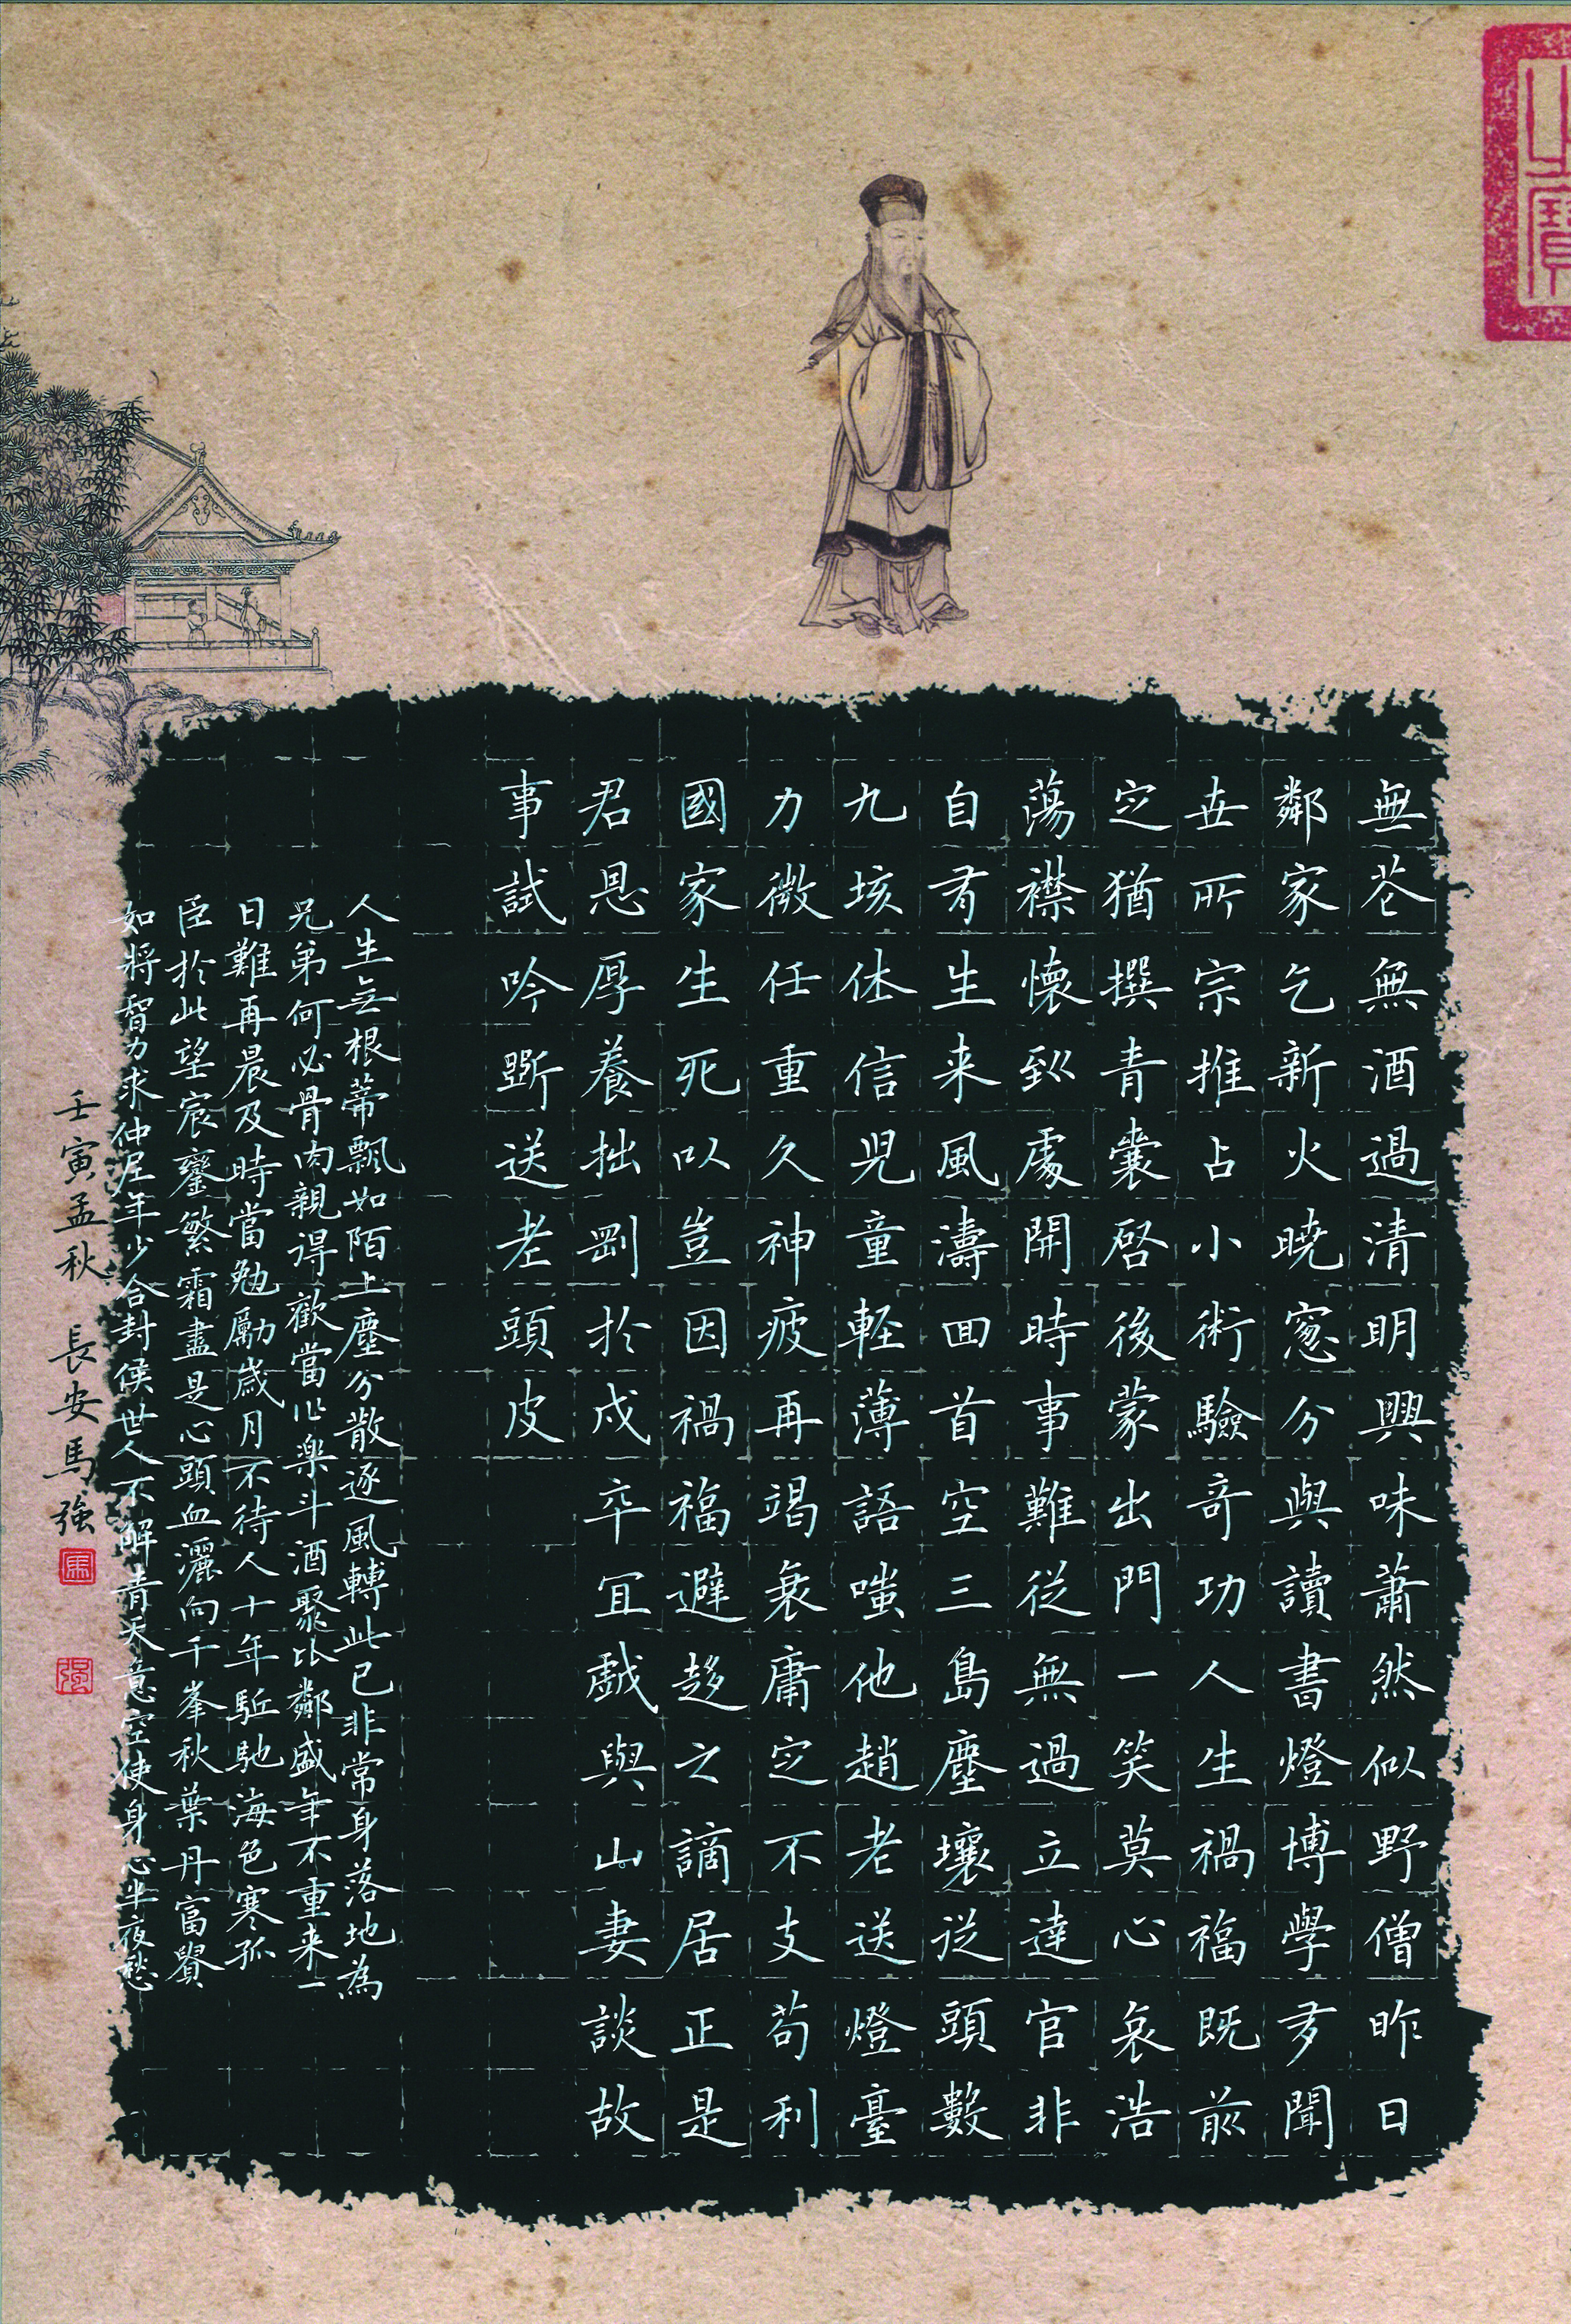 無花無酒過清明興味蕭然似野僧昨日
鄰家乞新火曉窓分與讀書燈博學多聞
世所宗推占小術驗奇功人生禍福既前
定猶撰青囊啓後蒙出門一笑莫心哀浩
蕩襟懷到處開時事難從無過立達官非
自有生来風濤回首空三島塵壤從頭數
九垓休信兒童輕薄語嗤他趙老送燈臺
力微任重久神疲再竭衰庸定不支苟利
國家生死以豈因禍福避趨之謫居正是
君恩厚養拙剛於戍卒宜戲與山妻談故
事試吟斷送老頭皮
人生無根蒂飄如陌上塵分散逐風轉此已非常身落地為
兄弟何必骨肉親得歡當作樂斗酒聚比鄰盛年不重来一
日難再晨及時當勉勵歲月不待人十年駈馳海色寒孤
臣於此望宸鑾繁霜盡是心頭血灑向千峯秋葉丹富貴
如將智力求仲尼年少合封侯世人不解青天意空使身心半夜愁
壬寅孟秋 長安馬強
馬
強